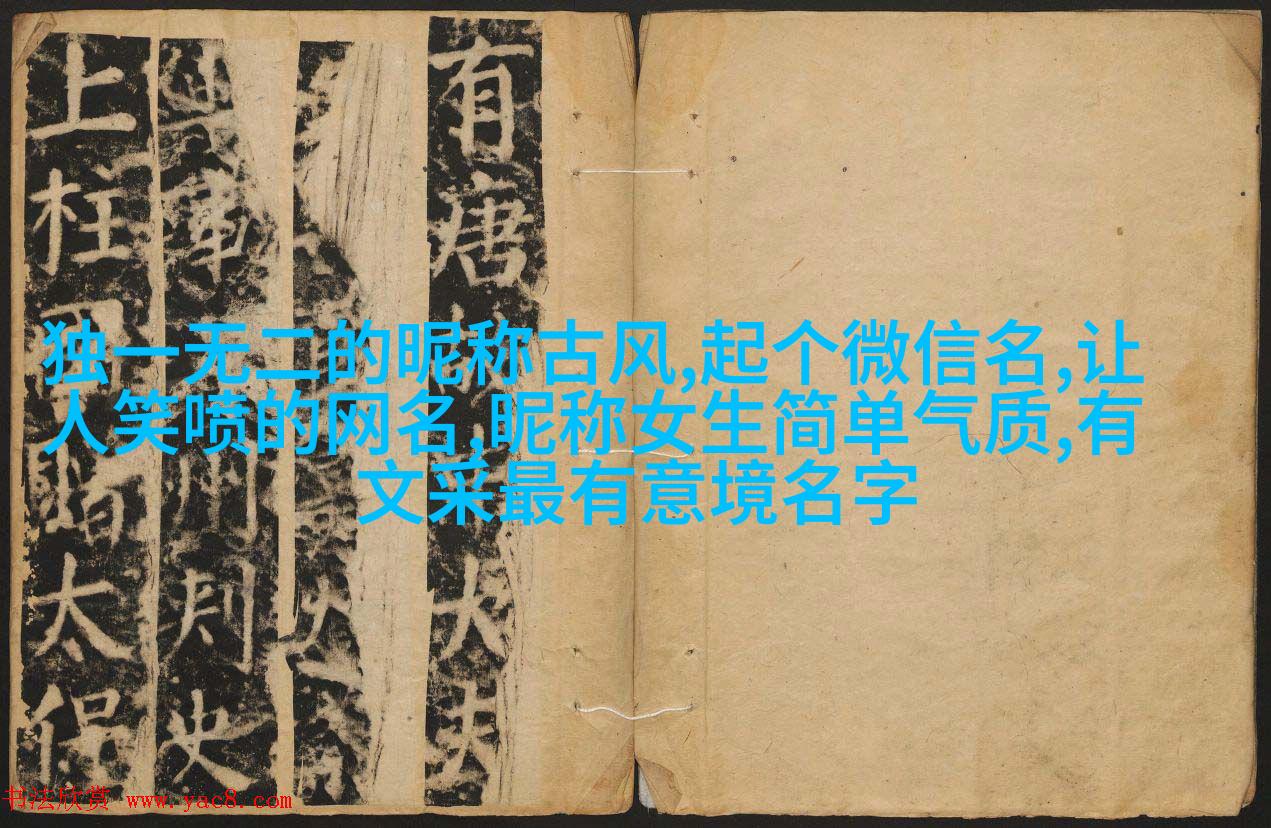 有唐
大夫
州刺史
上柱國
太保
独一无二的昵称古风,起个微信名,让
人笑喷的网名,昵称女生简单气质,有
文采最有意境名字
书法欣赏 www.yac8.com